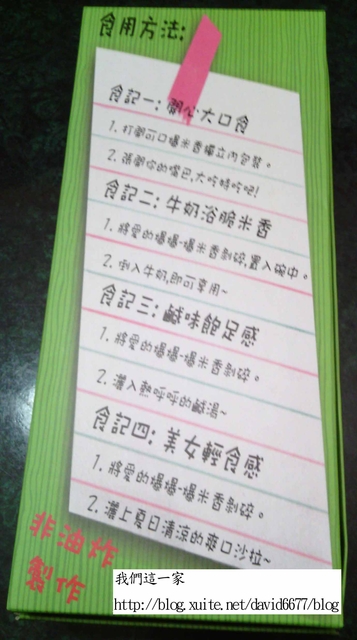 食用方法:
食記一: 開心大口食
1. 打開可口爆米香獨立內包裝。
2. 張開你的嘴巴,大吃特吃吧!
食記二: 牛奶浴脆米香
1. 將愛的爆爆-爆米香剝碎,置入碗中。
2. 倒入牛奶,即可享用~
食記三: 鹹味飽足感
1. 將愛的爆爆-爆米香剝碎。
2. 灑入熱呼呼的鹹湯~
食記四: 美女輕食感
1. 將愛的爆爆-爆米香剝碎。
2. 灑上夏日清涼的爽口沙拉~
非油炸
製作
我們這一家
http://blog.xuite.net/david6677/blog